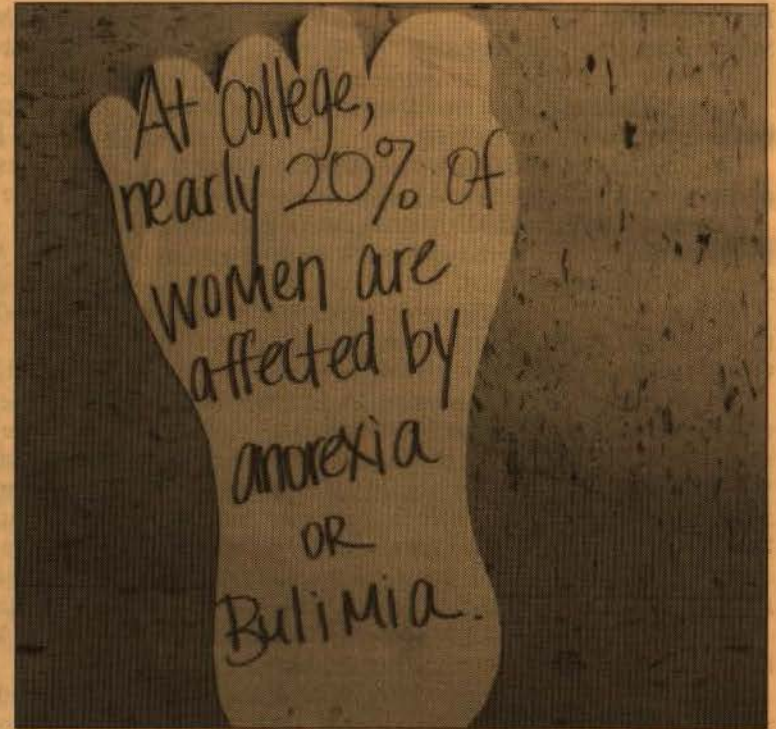 At college,
nearly 20% of
women are
affected by
anorexia
OR
Bulimia.